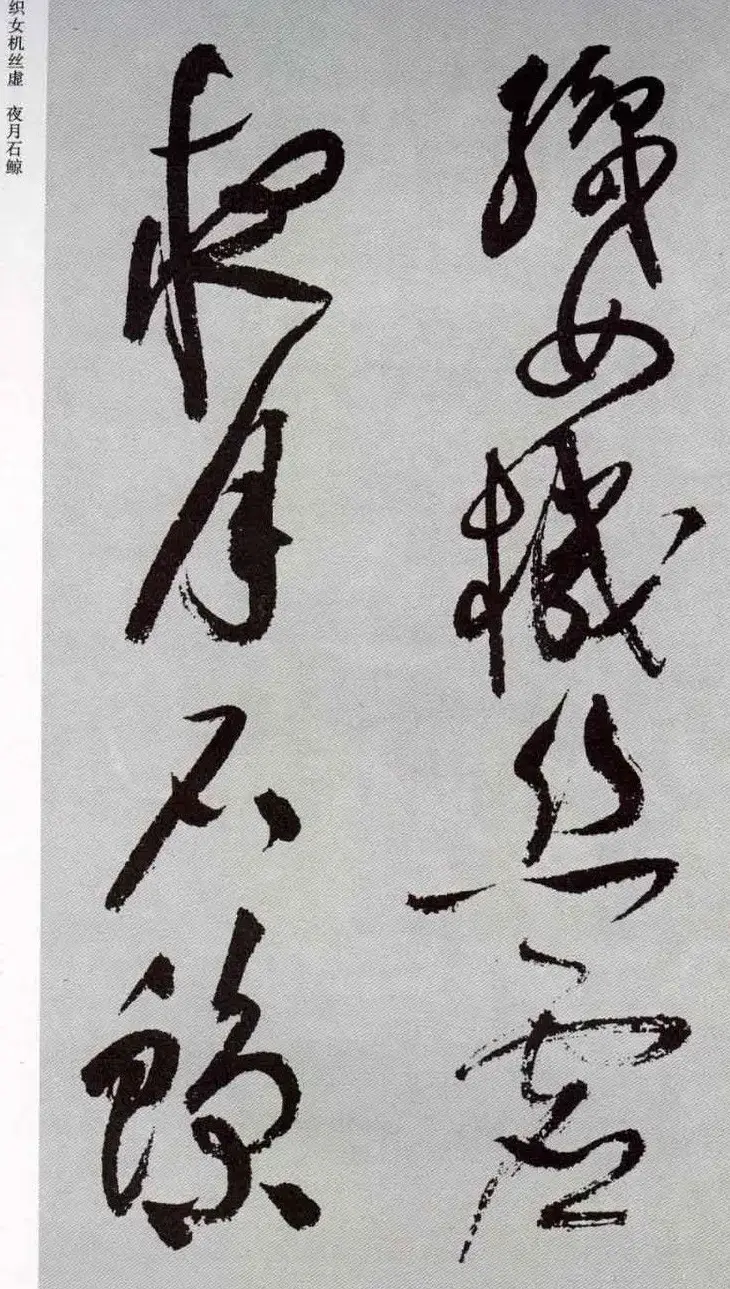 織女機丝虚
夜月石鯨
织女机丝虚 夜月石鲸